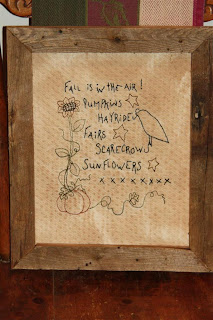 Fall is in the air!
Pumpkins
Hayrides
Fairs
Scarecrow
Sunflowers
x x x x x x x x